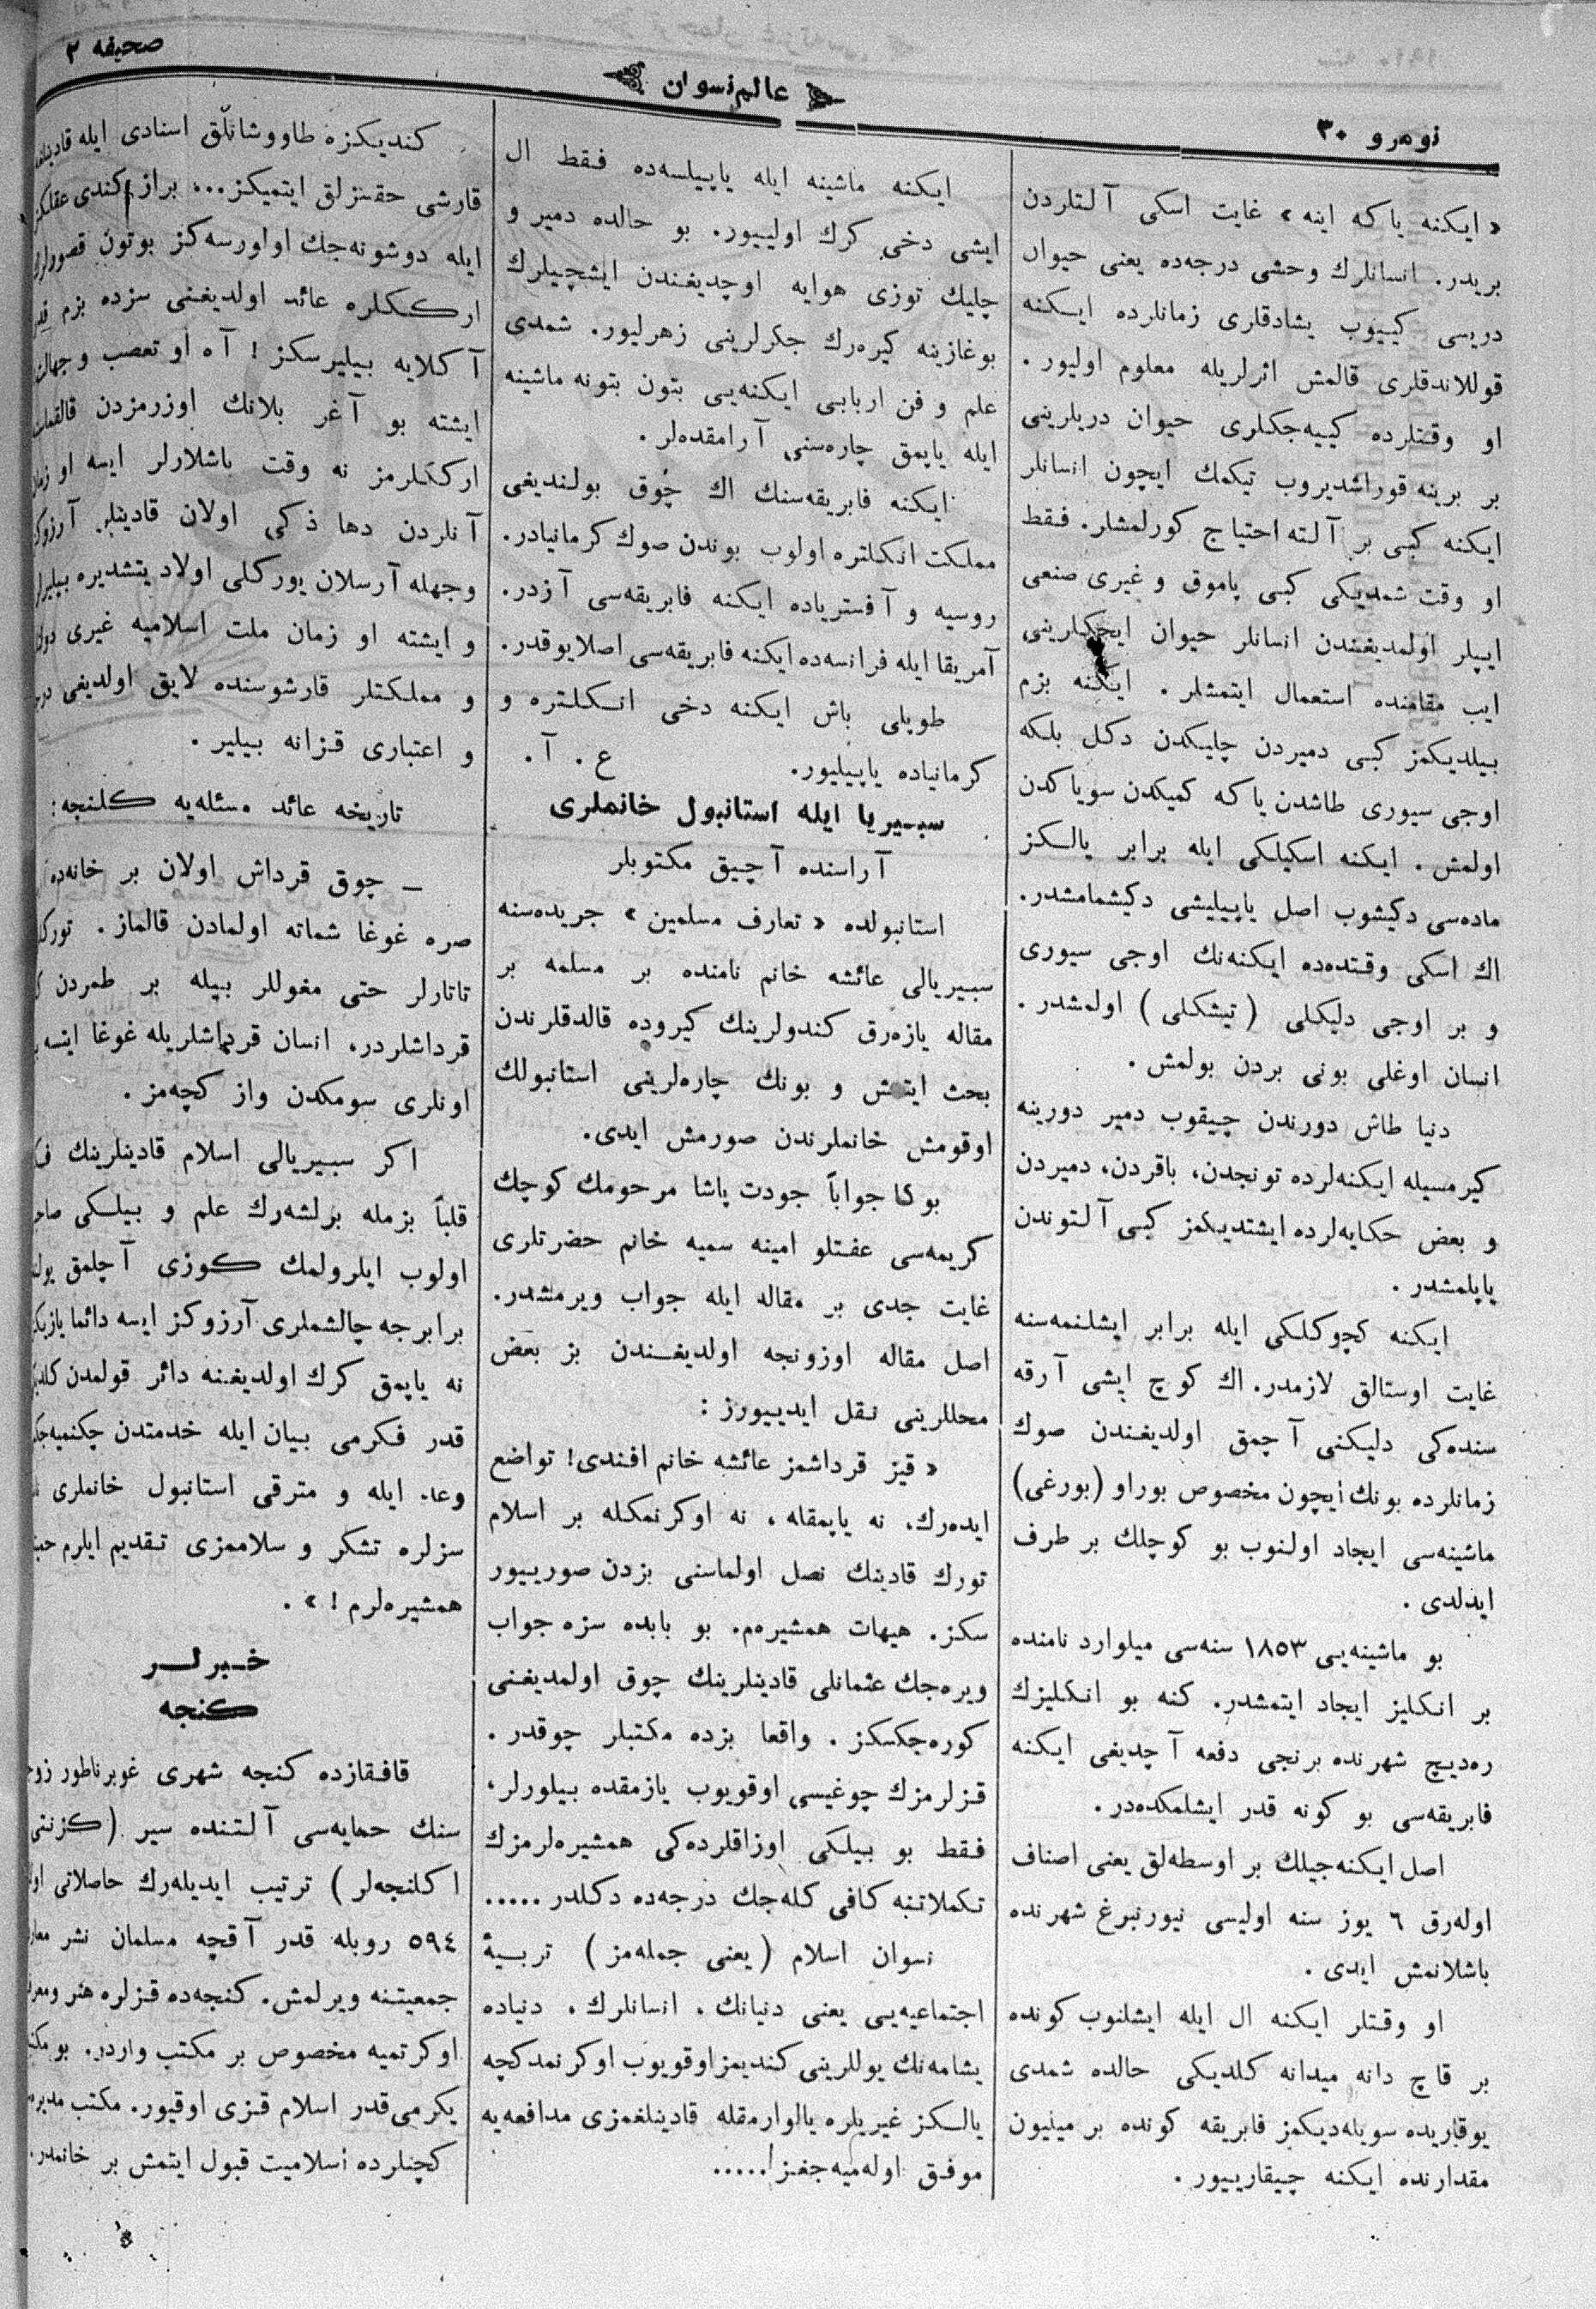 نومرو ٣٠
عالم نسوان
صحيفه ٣
« ايكنه ياكه اينه » غايت اسكى آلتلردن
بريدر. انسانلرك وحشى درجه‌ده يعنى حيوان
دريسى كييوب يشادقلرى زمانلرده ايكنه
قوللاندقلرى قالمش اثرلريله معلوم اوليور.
او وقتلرده كييه‌جكلرى حيوان دريلرينى
بر برينه قوراشديروب تيكمك ايچون انسانلر
ايكنه كبى بر آلته احتياج كورلمشلر. فقط
او وقت شمديكى كبى پاموق و غيرى صنعى
ايپلر اولمديغندن انسانلر حيوان ايچكلرينى
ايب مقامنده استعمال ايتمشلر. ايكنه بزم
بيلديكمز كبى دميردن چليكدن دكل بلكه
اوجى سيورى طاشدن ياكه كميكدن سوياكدن
اولمش. ايكنه اسكيلكى ايله برابر يالكز
ماده‌سى دكيشوب اصل ياپيليشى دكيشمامشدر.
اك اسكى وقتده‌ده ايكنه‌نك اوجى سيورى
و بر اوجى دليكلى ( تيشكلى ) اولمشدر.
انسان اوغلى بونى بردن بولمش.
دنيا طاش دورندن چيقوب دمير دورينه
كيرمسيله ايكنه‌لرده تونجدن، باقردن، دميردن
و بعض حكايه‌لرده ايشتديكمز كبى آلتوندن
ياپلمشدر.
ايكنه كچوكلكى ايله برابر ايشلنمه‌سنه
غايت اوستالق لازمدر. اك كوچ ايشى آرقه
سنده‌كى دليكنى آچمق اولديغندن صوك
زمانلرده بونك ايچون مخصوص بوراو (بورغى)
ماشينه‌سى ايجاد اولنوب بو كوچلك بر طرف
ايدلدى.
بو ماشينه‌يى ١٨٥٣ سنه‌سى ميلوارد نامنده
بر انكليز ايجاد ايتمشدر. كنه بو انكليزك
ره‌ديچ شهرنده برنجى دفعه آچديغى ايكنه
فابريقه‌سى بو كونه قدر ايشلمكده‌در.
اصل ايكنه‌جيلك بر اوسطه‌لق يعنى اصناف
اوله‌رق ٦ يوز سنه اوليسى نيورنبرغ شهرنده
باشلانمش ايدى.
او وقتلر ايكنه ال ايله ايشلنوب كونده
بر قاچ دانه ميدانه كلديكى حالده شمدى
يوقاريده سويله‌ديكمز فابريقه كونده بر ميليون
مقدارنده ايكنه چيقارييور.
ايكنه ماشينه ايله ياپيلسه‌ده فقط ال
ايشى دخى كرك اولييور. بو حالده دمير و
چليك توزى هوايه اوچديغندن ايشچيلرك
بوغازينه كيره‌رك جكرلرينى زهرليور. شمدى
علم و فن اربابى ايكنه‌يى بتون بتونه ماشينه
ايله ياپمق چاره‌سنى آرامقده‌لر.
ايكنه فابريقه‌سنك اك چوق بولنديغى
مملكت انكلتره اولوب بوندن صوك كرمانيادر.
روسيه و آفسترياده ايكنه فابريقه‌سى آزدر.
آمريقا ايله فرانسه‌ده ايكنه فابريقه‌سى اصلا يوقدر.
طوپلى باش ايكنه دخى انكلتره و
كرمانياده ياپيليور. ع. آ.
سبيريا ايله استانبول خانملرى
آراسنده آچيق مكتوبلر
استانبولده « تعارف مسلمين » جريده‌سنه
سبيريالى عائشه خانم نامنده بر مسلمه بر
مقاله يازه‌رق كندولرينك كيروده قالدقلرندن
بحث ايتمش و بونك چاره‌لرينى استانبولك
اوقومش خانملرندن صورمش ايدى.
بوكا جواباً جودت پاشا مرحومك كوچك
كريمه‌سى عفتلو امينه سميه خانم حضرتلرى
غايت جدى بر مقاله ايله جواب ويرمشدر.
اصل مقاله اوزونجه اولديغندن بز بعض
محللرينى نقل ايدييورز:
« قيز قرداشمز عائشه خانم افندى! تواضع
ايده‌رك، نه ياپمقله، نه اوكرنمكله بر اسلام
تورك قادينك نصل اولماسنى بزدن صورييور
سكز. هيهات همشيره‌م. بو بابده سزه جواب
ويره‌جك عثمانلى قادينلرينك چوق اولمديغنى
كوره‌جكسكز. واقعا بزده مكتبلر چوقدر.
قزلرمزك چوغيسى اوقويوب يازمقده بيلورلر،
فقط بو بيلكى اوزاقلرده‌كى همشيره‌لرمزك
تكملاتنه كافى كله‌جك درجه‌ده دكلدر.....
نسوان اسلام ( يعنى جمله‌مز ) تربيۀ
اجتماعيه‌يى يعنى دنيانك، انسانلرك، دنياده
يشامه‌نك يوللرينى كنديمز اوقويوب اوكرنمدكچه
يالكز غيريلره يالوارمقله قادينلغمزى مدافعه‌يه
موفق اوله‌ميه‌جغز!.....
كنديكزه طاووشانلق اسنادى ايله
قارشى حقسزلق ايتميكز... براز كندى عقلكز
ايله دوشونه‌جك اولورسه‌كز بوتون قصورلرك
ارككلره عائد اولديغنى سزده بزم قدر
آكلايه بيليرسكز! آه او تعصب و جهالت
ايشته بو آغر بلانك اوزرمزدن
ارككلرمز نه وقت باشلارلر ايسه او زمان
آنلردن دها ذكى اولان قادينلر
وجهله آرسلان يوركلى اولاد يتشديره بيليرلر
و ايشته او زمان ملت اسلاميه غيرى
و مملكتلر قارشوسنده لايق اولديغى
و اعتبارى قزانه بيلير.
تاريخه عائد مسئله‌يه كلنجه:
ـ چوق قرداش اولان بر خانه‌ده
صره غوغا شماته اولمادن قالماز.
تاتارلر حتى مغوللر بيله بر طمردن
قرداشلردر، انسان قرداشلريله غوغا ايتسه
اونلرى سومكدن واز كچه‌مز.
اكر سبيريالى اسلام قادينلرينك
قلباً بزمله برلشه‌رك علم و بيلكى
اولوب ايلرولمك كوزى آچلمق
برابرجه چالشملرى آرزوكز ايسه دائما
نه ياپمق كرك اولديغنه دائر قولمدن
قدر فكرمى بيان ايله خدمتدن
وعد ايله و مترقى استانبول خانملرى
سزلره تشكر و سلاممزى تقديم ايلرم
همشيره‌لرم! ».
خبرلر
كنجه
قافقازده كنجه شهرى غوبرناطور
سنك حمايه‌سى آلتنده سير
اكلنجه‌لر ) ترتيب ايديله‌رك حاصلاتى
٥٩٤ روبله قدر آقچه مسلمان نشر
جمعيتنه ويرلمش. كنجه‌ده قزلره هنر
اوكرتميه مخصوص بر مكتب واردر. بو
يكرمى قدر اسلام قزى اوقيور. مكتب
كچنلرده اسلاميت قبول ايتمش بر خانمدر.